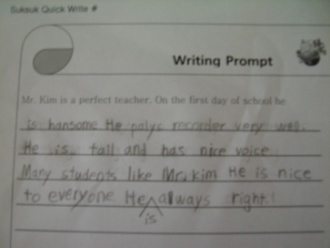 Suksuk Quick Write #
Writing Prompt
Mr. Kim is a perfect teacher. On the first day of school he
is hansome He palyc recorder very well.
He is tall and has nice voice
Many students like Mr. kim He is nice
to everyone He always right!
is